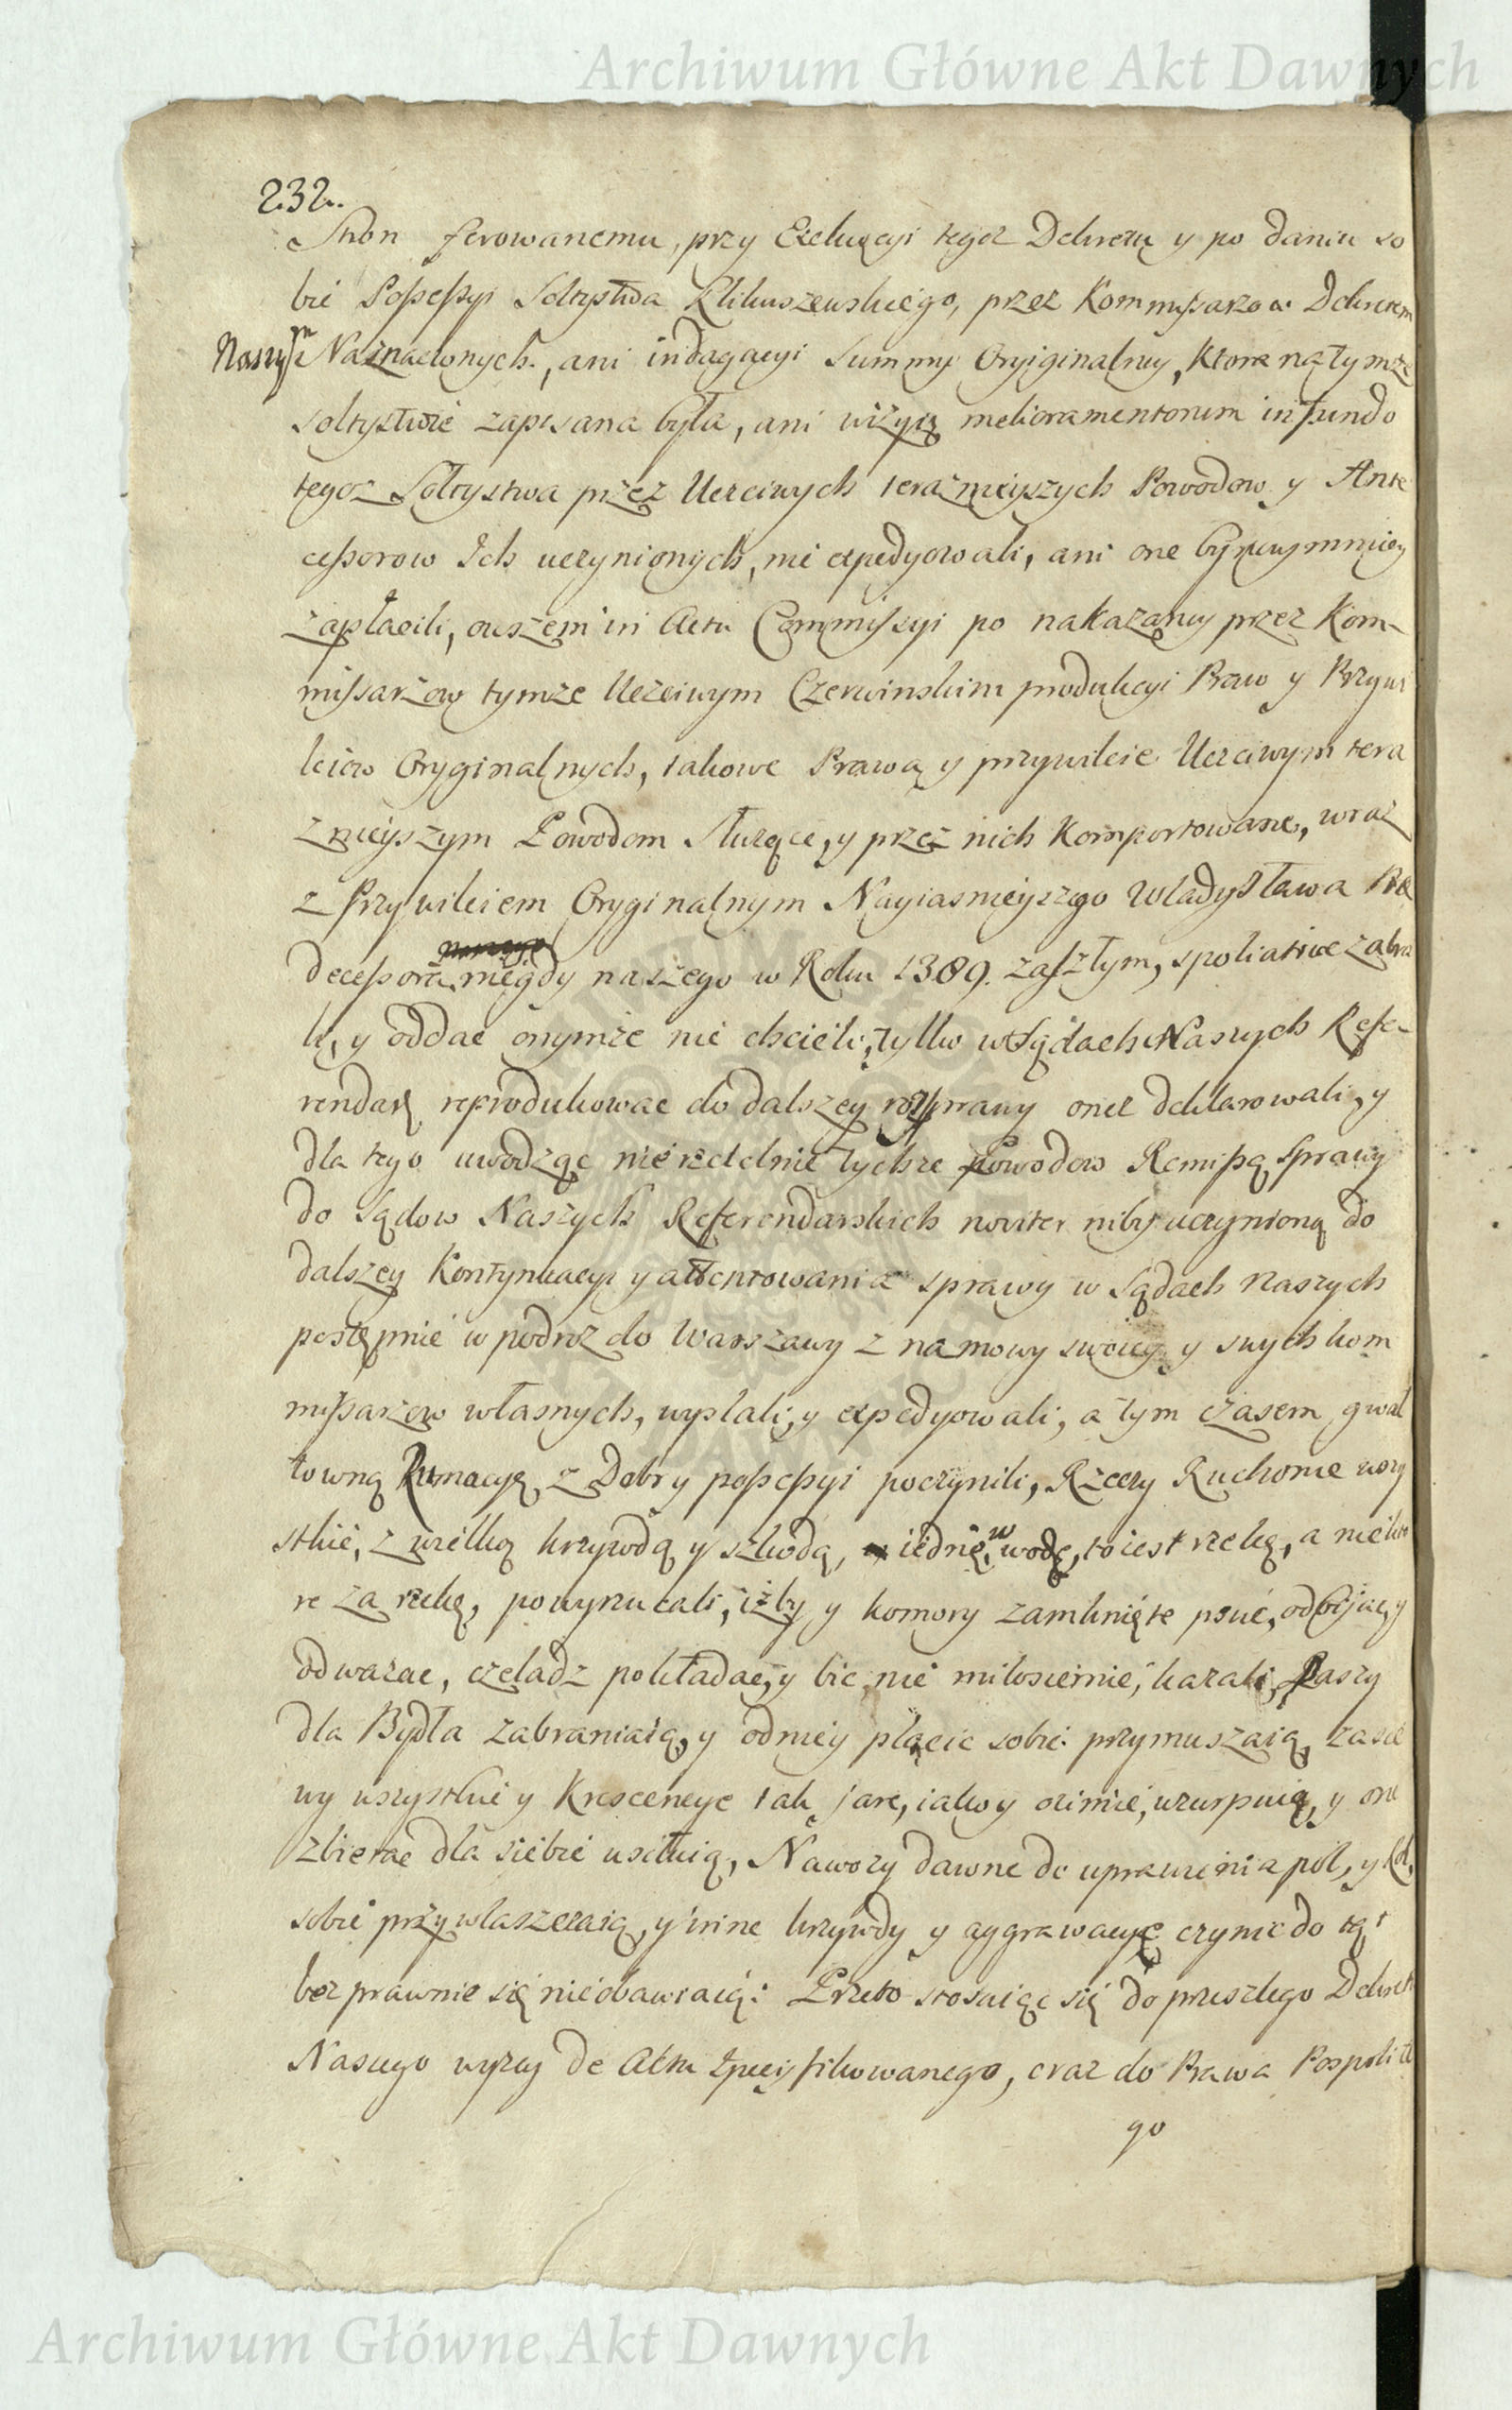 Archiwum Główne Akt Dawnych
232.
Stron ferowanemu, przy Exekucyi tegoz Dekretu y po daniu so
bie Possessyi Sołtystwa Klikuszewskiego, przez Kommissarzow Dekretem
Naszym Naznaczonych, ani indagacyi Summy Oryiginalney, Ktora na tymze
sołtystwie zapisana była, ani wizyą melioramentorum in fundo
tegoz Sołtystwa przez Uczciwych teraznieyszych Powodow y Ante
cessorow Ich uczynionych, nie expedyowali, ani one bynaymniey
zapłacili, owszem in Actu Commissyi po nakazaney przez Kom-
missarzow tymze Uczciwym Czerwinskim produkcyi Praw y Przywi
leiow Oryginalnych, takowe Prawa y przywileie Uczciwym tera
znieyszym Powodom służące, y przez nich komportowane, wraz
z Przywileiem Oryginalnym Nayiasnieyszego Władysława Pre
decessora niegdy naszego w Roku 1389. zaszłym, spoliative zabra
li, y oddac onymze nie chcieli, tylko w Sądach Naszych Refe-
rendarz reprodukowac do dalszey rozprawy onez deklarowali, y
dla tego uwodząc nierzetelnie tychze Powodow Remissą sprawy
do Sądow Naszych Referendarskich noviter niby uczynioną do
dalszey Kontynuacyi y attentowania sprawy w Sądach Naszych
postępnie w podroz do Warszawy z namowy swoiey y swych kom
missarzow własnych, wysłali, y expedyowali, a tym czasem gwał
towną Rumacyę z Dobr y possessyi poczynili, Rzeczy Ruchome wszy
stkie, z wielką krzywdą y szkodą, iedne w wodę, to iest rzekę, a niekto
re za rzekę, powyrzucali, izby y komory zamknięte psuć, odbijać, y
odwazac, czeladz pokładac, y bic nie miłosiernie, kazali, Paszy
dla Bydła zabraniaią, y od niey płacic sobie przymuszaią, zasie
wy wszystkie y Krescencye tak jare, iako y ozimie, uzurpuią, y one
zbierac dla siebie usiłuią, Nawozy dawne do uprawienia pol, y Rol,
sobie przywłaszczaią, y inne krzywdy y aggrawacye czynic do tąt
bezprawnie się nie obawiaią: Przeto stosuiąc się do przeszłego Dekretu
Naszego wyzey de Actu specifikowanego, oraz do Prawa Pospolite
go
Archiwum Główne Akt Dawnych